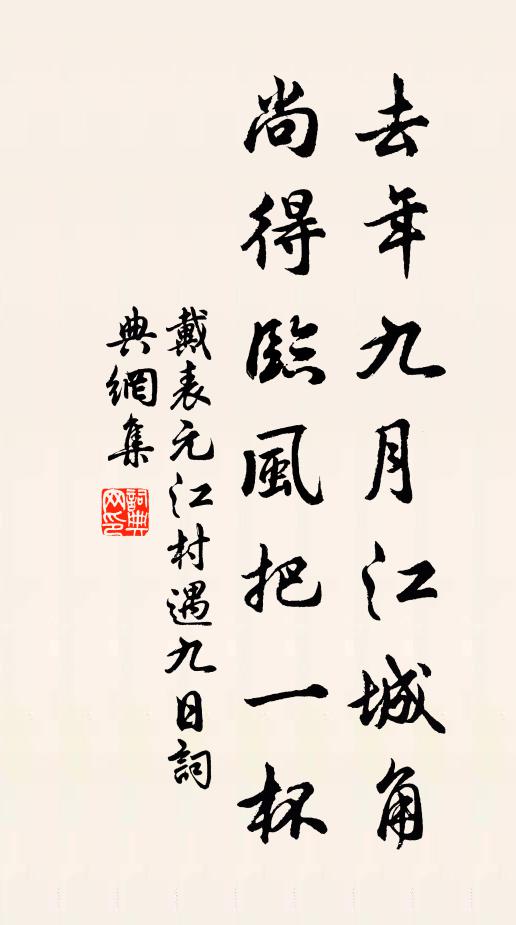 去年九月江城角
尚得臨風把一杯
戴表元江村遇九日詞
典網集
詞典网印